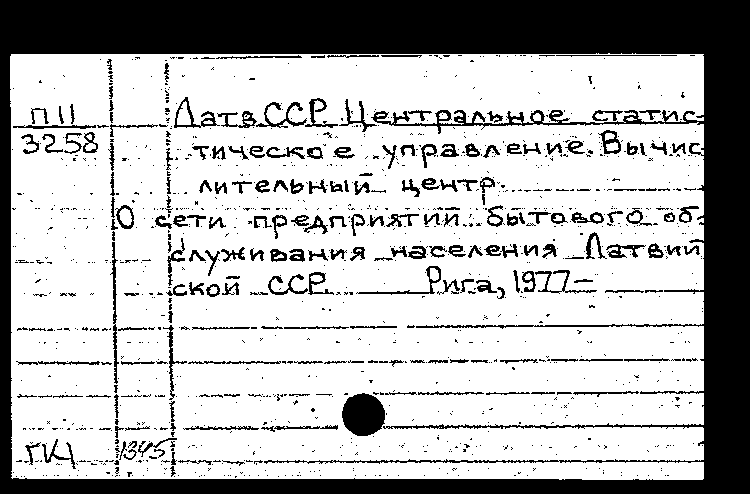 П II
3258
Латв.ССР. Центральное статис-
тическое управление. Вычис-
лительный центр.
О сети предприятий бытового об-
служивания населения Латвий
ской ССР. Рига, 1977–
ГК1 1345